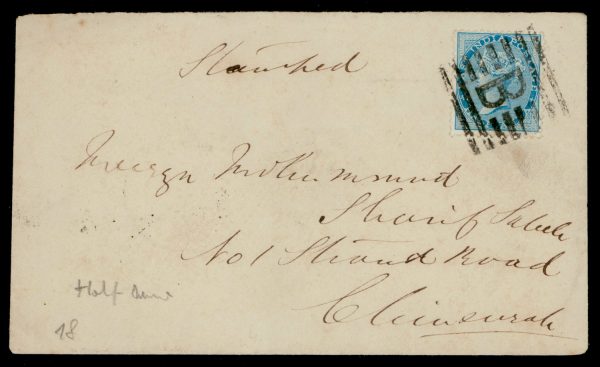 Stamped
INDIA
B
Mohummud
Sharif Saheb
No 1 Strand Road
Chinsurah
Half Anna
18